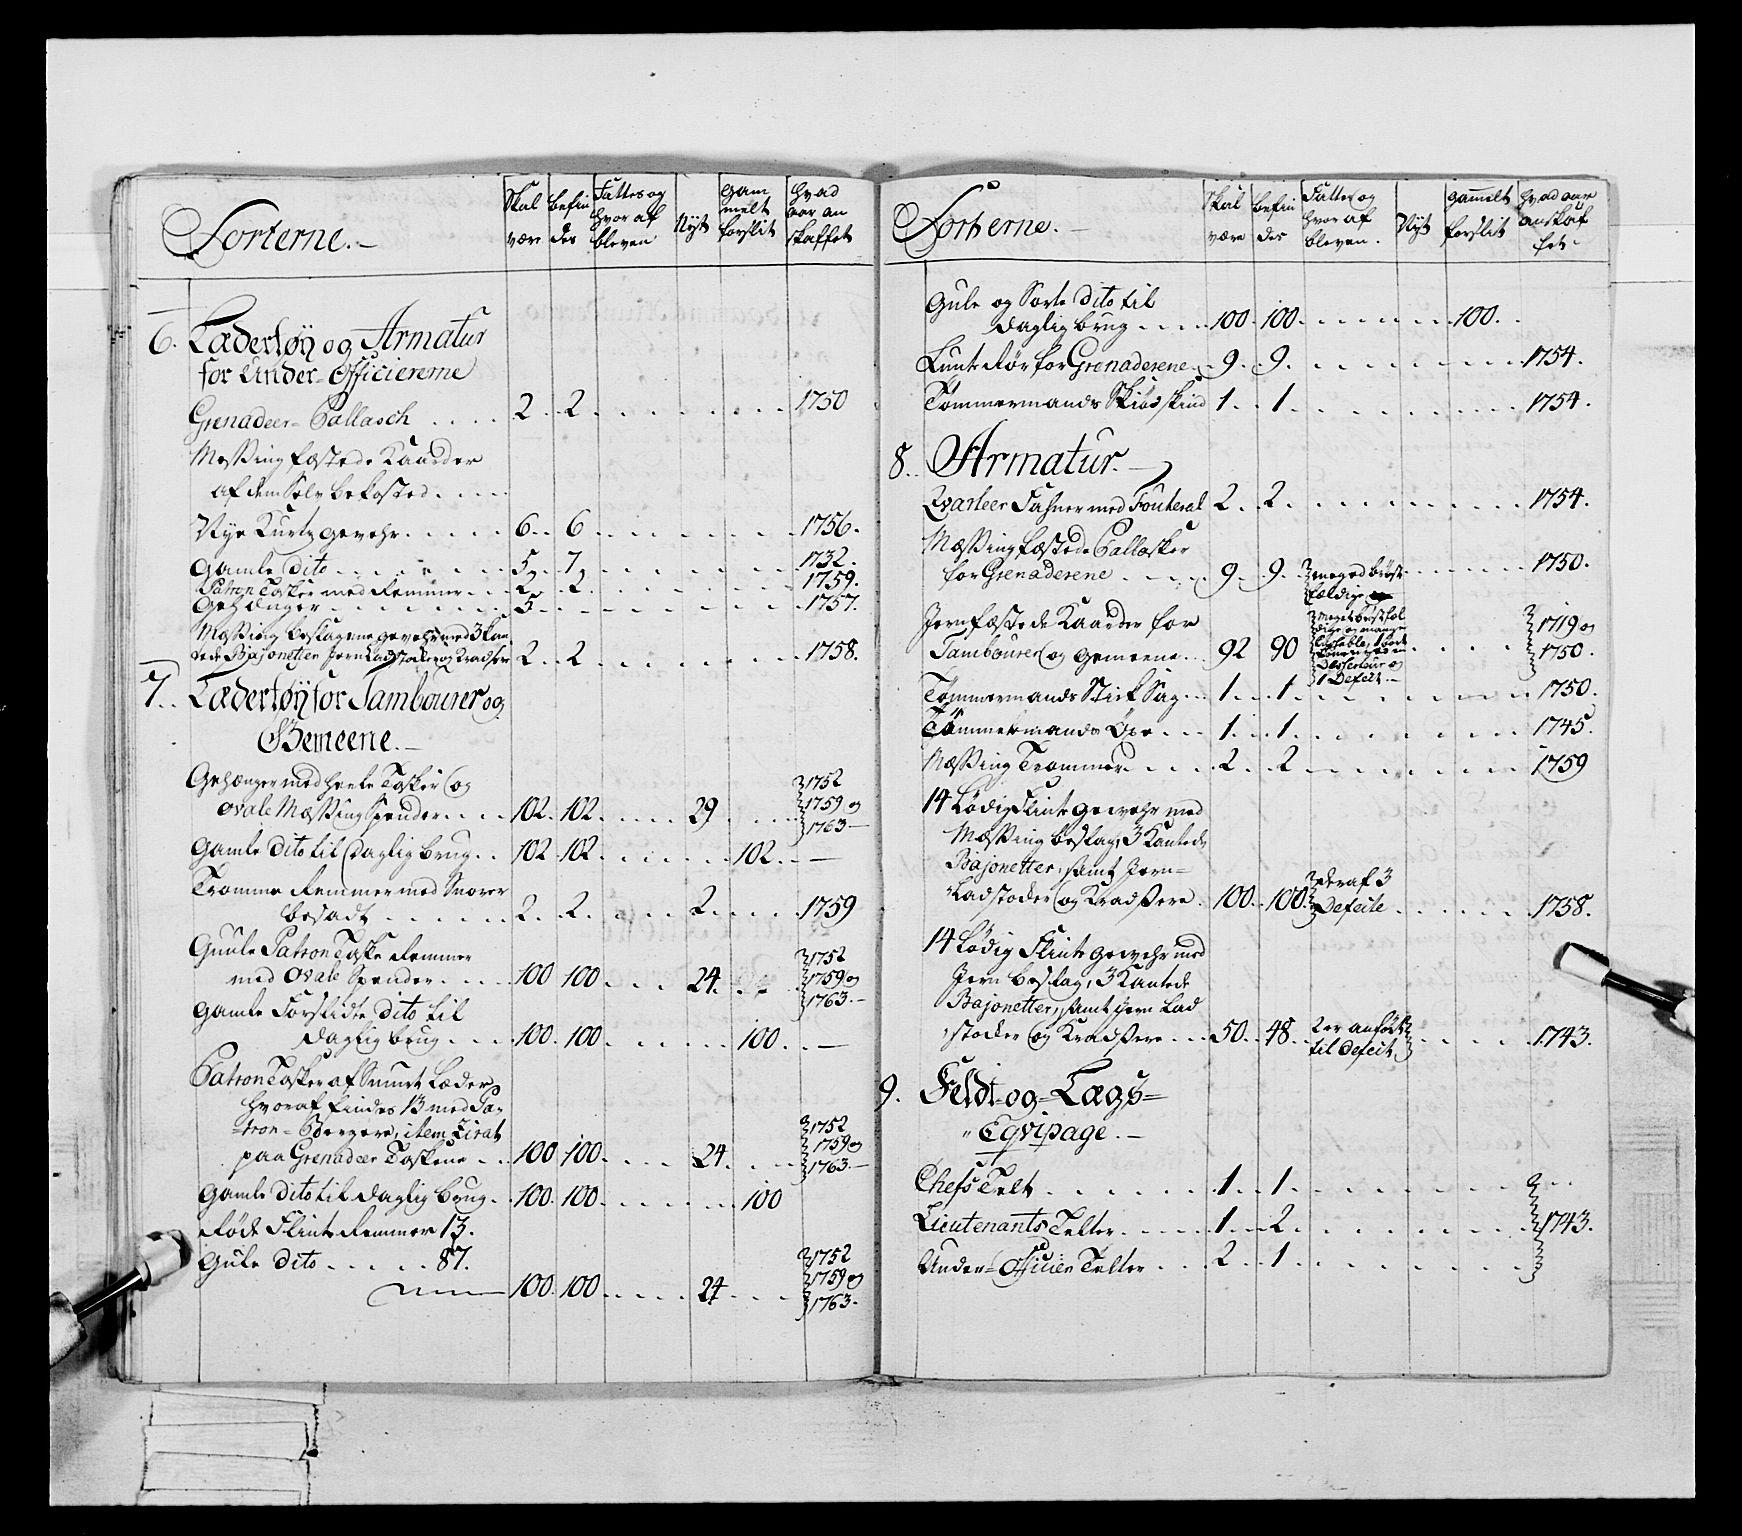 Sorterne.
Skal være
befindes
Fattes og hvor af bleven
Nyt
gammelt forslit
hvad aar anskaffet
6. Lædertøy og Armatur
for Under-Officiererne
Grenadeer-Pallasch 2 2 1750
Messing fæstede Kaarder
af dem Selv bekosted
Nye Kurtz gevehr 6 6 1756.
Gamle dito 5 7 1732.
Patron Tasker med Remmer 2 2 1759.
Gehænger 5 1757.
Messing beslagene gevehr med 3 kan
tede Bajonetter Jern Ladstocker og Kradser 2 2 1758.
7. Lædertøy for Tambourer og
Gemeene.
Gehænger med heele Tasker og
ovale Messing Spender 102 102 29 1752 1759 og 1763
Gamle dito til daglig brug 102 102 102
Tromme Remmer med Snorer
besadt 2 2 2 1759
Guule Patron Taske Remmer
med Ovale Spender 100 100 24 1752 1759 og 1763.
Gamle Forslidte dito til
daglig brug 100 100 100
Patron Tasker af Smurt Læder
hvoraf findes 13 med Pa-
tron-Bergere, item Zirat
paa Grenadeer Taskene 100 100 24 1752 1759 og 1763.
Gamle dito til daglig brug 100 100 100
Røde Flint Remmer 13.
Gule dito 87.
100 100 24 1752 1759 og 1763.
Sorterne.
Skal være
befindes
Fattes og hvor af bleven.
Nyt
gammelt forslit
hvad aar anskaffet
Gule og Sorte dito til
daglig brug 100 100 100.
Lunte Rør for Grenaderene 9 9 1754.
Tømmermands Skiødskind 1 1 1754.
8. Armatur.
Qvarteer Fahner med Fouteral 2 2 1754.
Messing fæstede Pallasker
for Grenaderene 9 9 meged brøst fældige 1750.
Jern fæstede Kaarder for
Tambourer og Gemeene 92 90 Deserteur og 1 Defect 1719 og 1750.
Tømmermands Stick Sag 1 1 1750.
Tømmermands Øxe 1 1 1745.
Messing Trommer 2 2 1759
14 Lødig Flint gevehr med
Messing beslag, 3 Kantede
Bajonetter, samt Jern-
Ladstocker og Kradsere 100 100 deraf 3 Defecte 1758.
14 Lødig Flint gevehr med
Jern beslag, 3 Kantede
Bajonetter, samt Jern Lad
stocker og Kradsere 50 48 2 er anført til Defect 1743.
9. Feldt-og-Lægs-
Eqvipage.
Chefs Telt 1 1
Lieutenants Telter 1 2 1743.
Under-Officier Telter 2 1